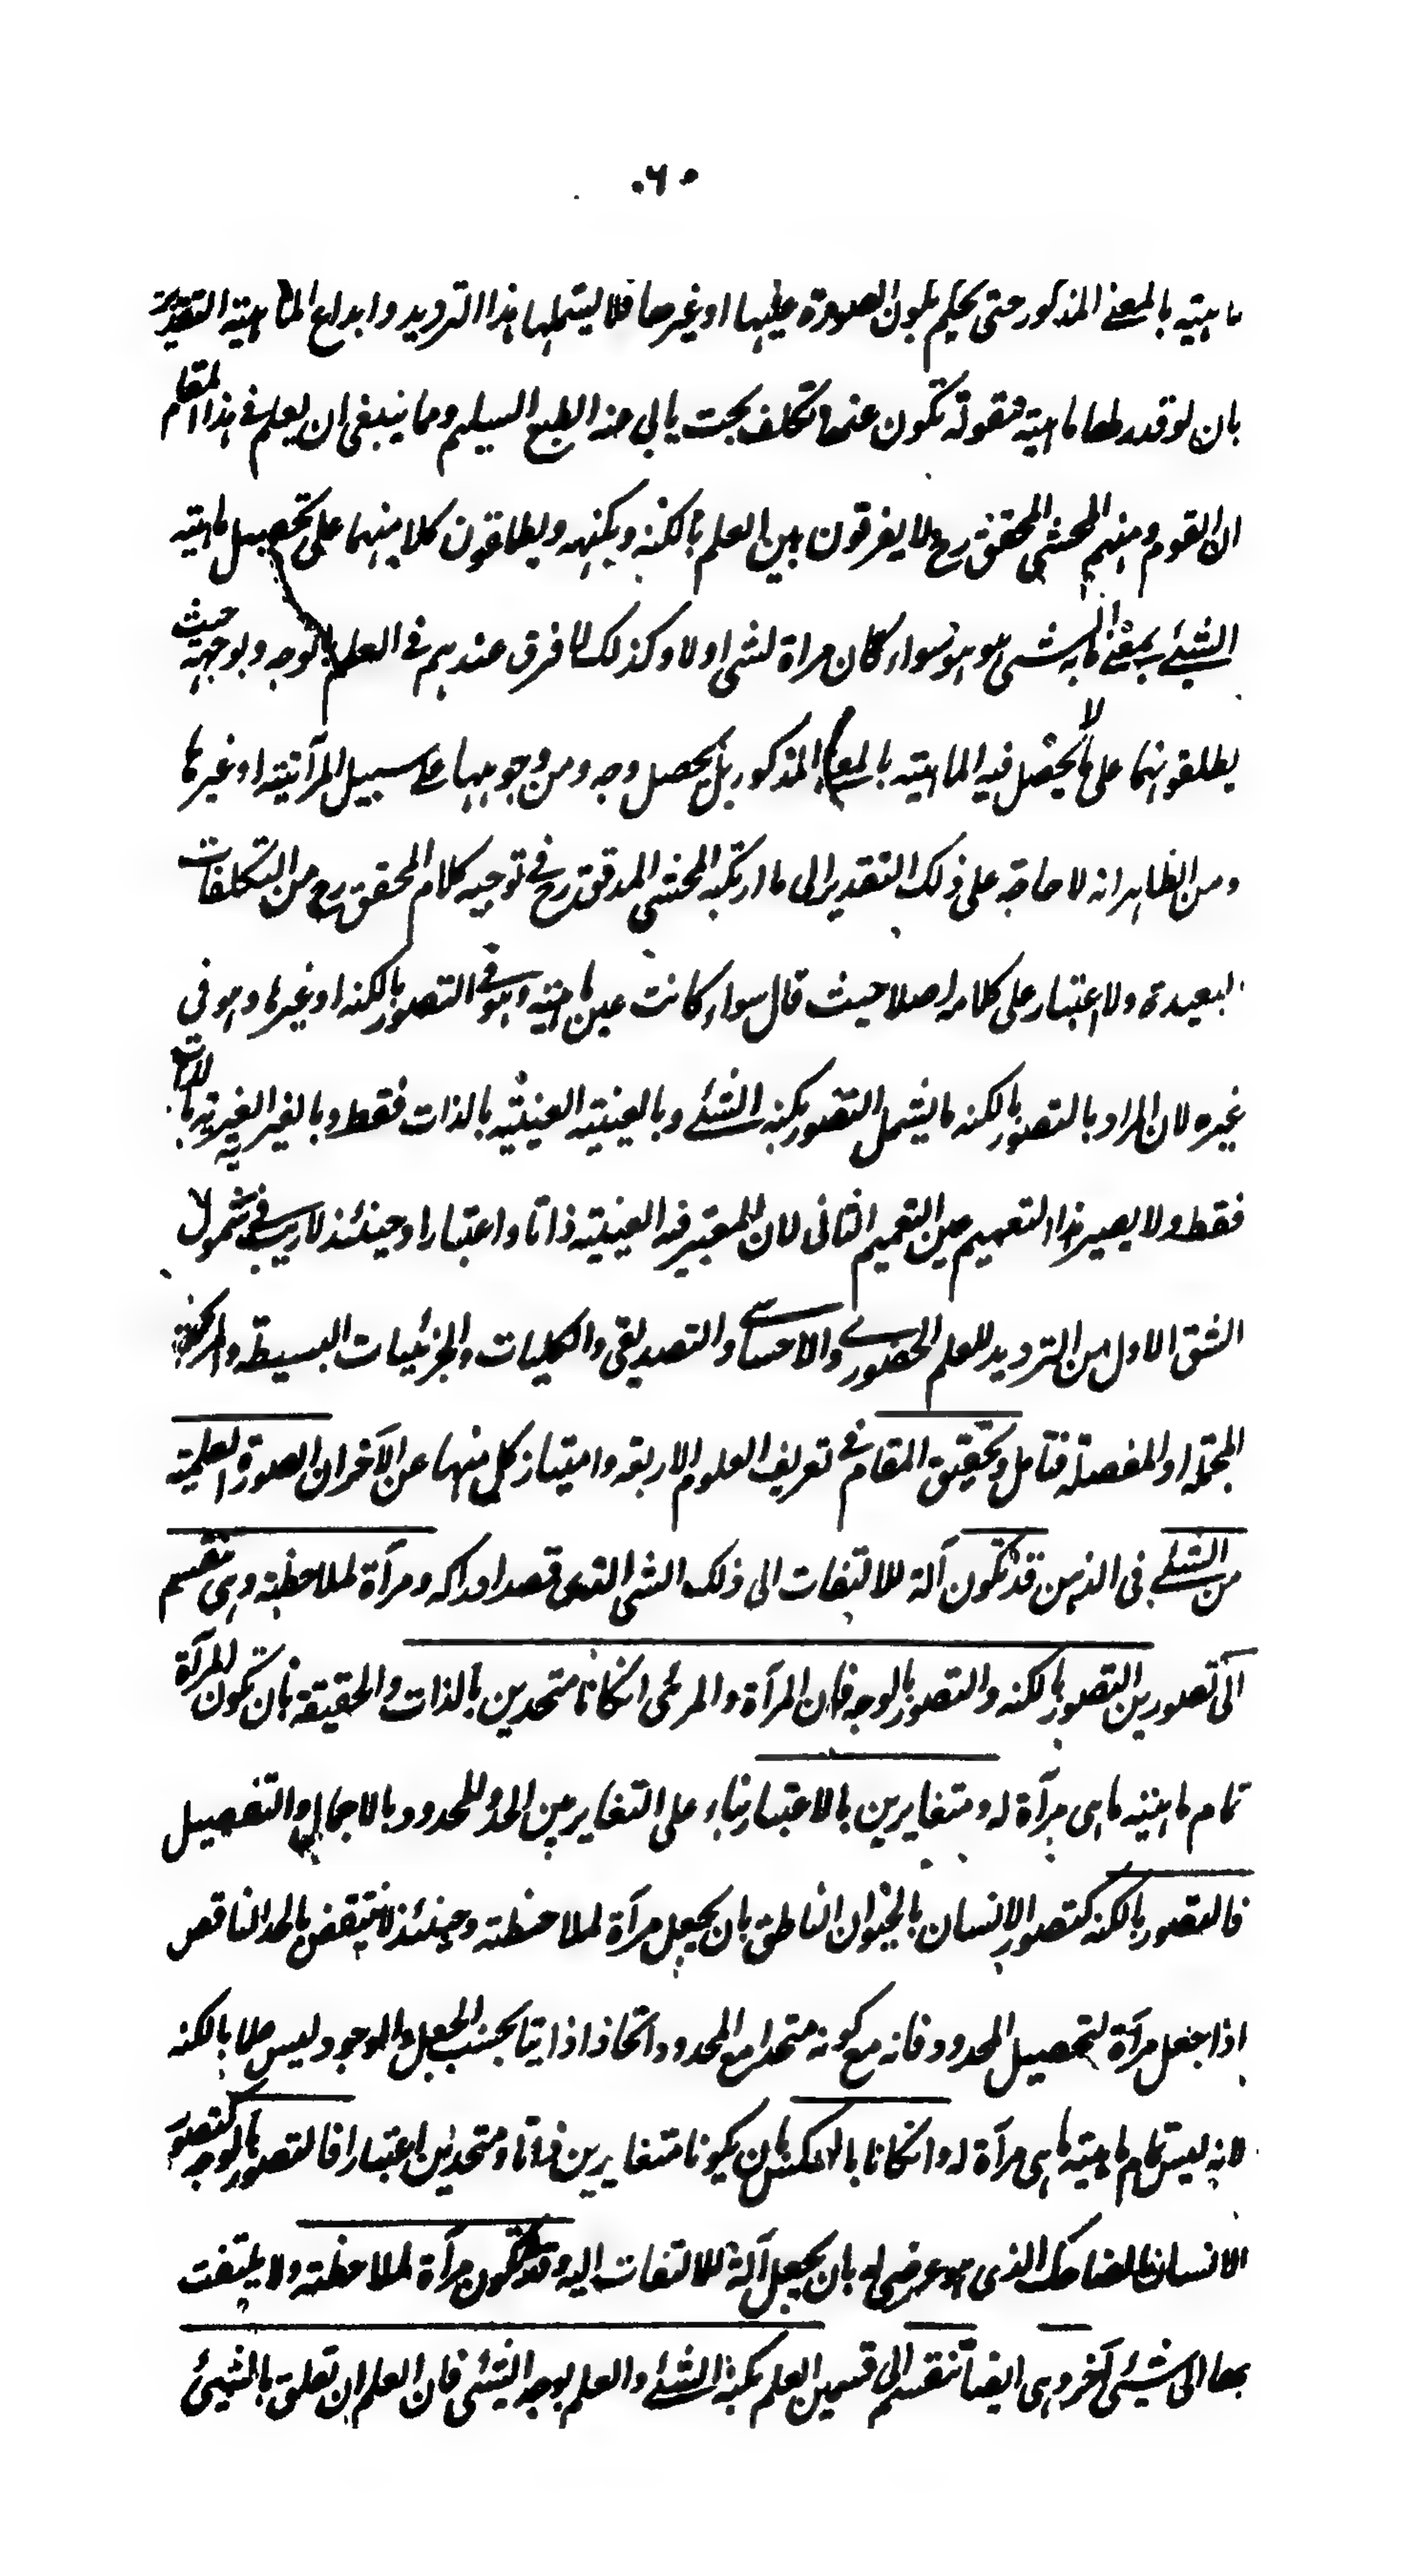 ٠٦٠
ماهيته بالمعنى المذكور حتى يحكم بكون الصورة عليها او غيرها فلا يشملها هذا الترديد وابداع الماهية التقديرية
بان لو قدر لها ماهية مقولة تكون عنها تكلف بحت يابى عنه الطبع السليم ومما ينبغى ان يعلم فى هذا المقام
ان القوم ومنهم المحشى المحقق رح لا يفرقون بين العلم بالكنه وبكنهه ويطلقون كلا منهما على تحصيل ماهية
الشئ بمعنى ما به الشى هو هو سواء كان مراة لشى اولا وكذلك لا فرق عندهم فى العلم بالوجه وبوجهه حيث
يطلقونهما على ما لا يحصل فيه الماهية بالمعنى المذكور بل يحصل وجه ومن وجوهها على سبيل المرآتية او غيرها
ومن الظاهر انه لا حاجة على ذلك التقدير الى ما ارتكبه المحشى المدقق رح فى توجيه كلام المحقق رح من التكلفات
البعيدة ولا اعتبار على كلامه اصلا حيث قال سواء كانت عين ماهيته وهو فى التصور بالكنه او غيرها وهو فى
غيره لان المراد بالتصور بالكنه ما يشمل التصور بكنه الشئ وبالعينية العينية بالذات فقط وبالغير الغيرية بالذات
فقط ولا يصير هذا التعميم عين التعميم الثانى لان المعتبر فيه العينية ذاتا واعتبارا وحينئذ لا ريب فى شمول
الشق الاول من الترديد للعلم الحضورى والاحساسى والتصديقى والكليات والجزئيات البسيطة والمركبة
المجملة او المفصلة فتامل وتحقيق المقام فى تعريف العلوم الاربعة وامتياز كل منها عن الآخر ان الصورة العلمية
من الشئ فى الذهن قد تكون آلة للالتفات الى ذلك الشى الذى قصد ادراكه ومرآة لملاحظته وهى تنقسم
الى تصورين التصور بالكنه والتصور بالوجه فان المرآة والمرئى انكانا متحدين بالذات والحقيقة بان تكون المرآة
تمام ماهيته ماهى مرآة له ومتغايرين بالاعتبار بناء على التغاير بين الحد والمحدود بالاجمال والتفصيل
فالتصور بالكنه كتصور الانسان بالحيوان الناطق بان يجعل مرآة لملاحظته وحينئذ لا ينتقض بالحد الناقص
اذا جعل مرآة لتحصيل المحدود فانه مع كونه متحدا مع المحدود اتحادا ذاتيا بحسب الجعل والوجود ليس علما بالكنه
لانه ليس تمام ماهيته ماهى مرآة له وانكانا بالعكس بان يكونا متغايرين ذاتا ومتحدين اعتبارا فالتصور بالوجه كتصور
الانسان بالضاحك الذى هو عرضى له بان يجعل آلة للالتفات اليه وقد تكون مرآة لملاحظته ولا يلتفت
بها الى شيئى آخر وهى ايضا تنقسم الى قسمين العلم بكنه الشئ والعلم بوجه الشئى فان العلم ان تعلق بالشيئ